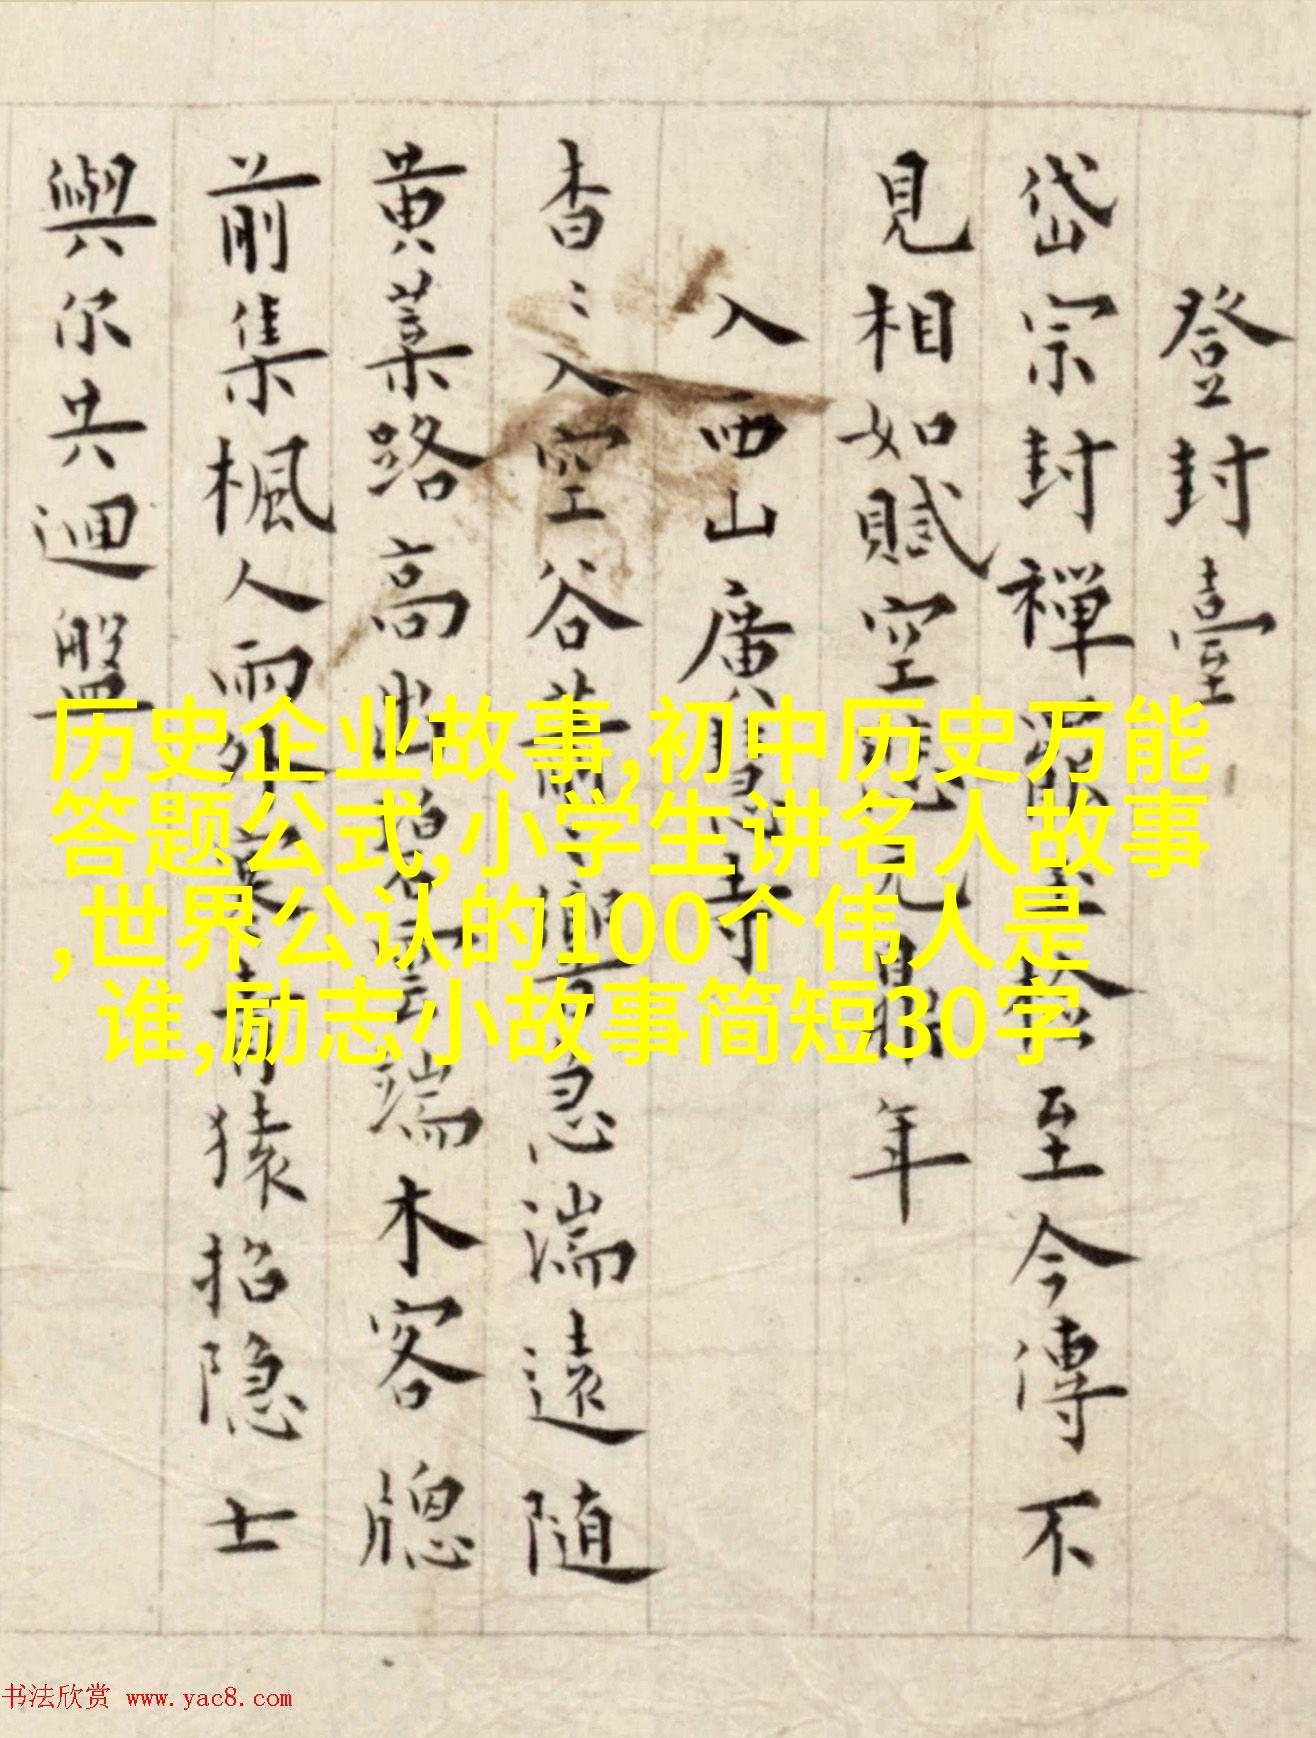 登封臺
岱宗封禪至今傳不
見相如賦空年
入西山廣寺
杳〻入空谷蕭〻響急湍遠随
黄葉路高出碧雲端木客牕
前集楓人雨外青猿招隐士
與尔共迴盤
历史企业故事,初中历史万能
答题公式,小学生讲名人故事
,世界公认的100个伟人是
谁,励志小故事简短30字
书法欣赏 www.yac8.com